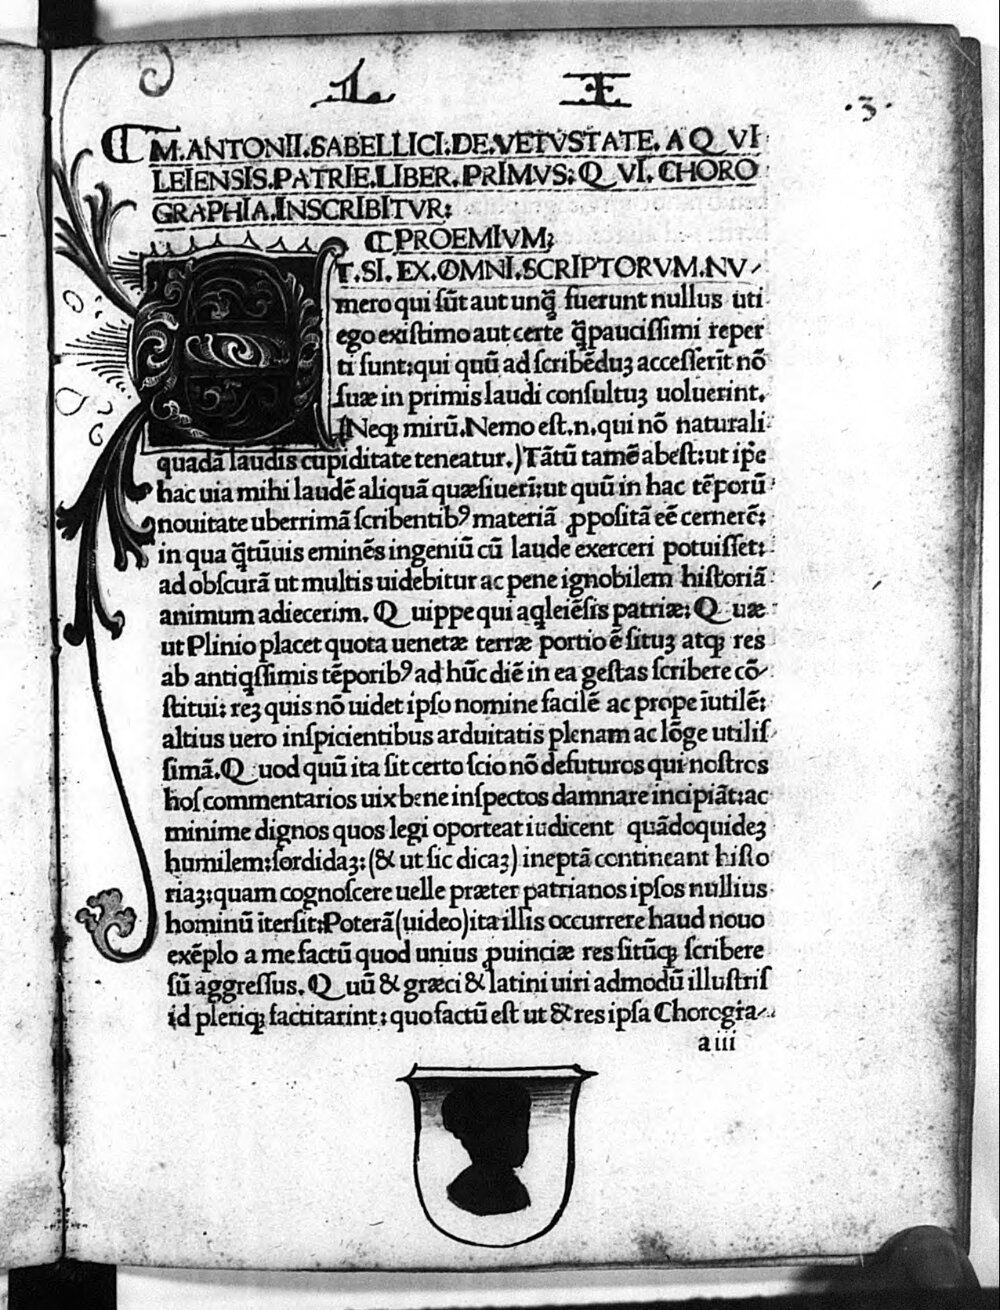 L E
.3.
M.ANTONII.SABELLICI.DE.VETVSTATE.AQVI
LEIENSIS.PATRIE.LIBER.PRIMVS: QVI.CHORO
GRAPHIA.INSCRIBITVR:
PROEMIVM;
ET.SI.EX.OMNI.SCRIPTORVM.NV
mero qui sūt aut unq̄ fuerunt nullus uti
ego existimo aut certe q̄paucissimi reper
ti sunt:qui quū ad scribēduꝫ accesserīt nō
suæ in primis laudi consultuꝫ uoluerint.
(Neqꝫ mirū.Nemo est.n.qui nō naturali
quadā laudis cupiditate teneatur.)Tātū tamē abest:ut ip̄e
hac uia mihi laudē aliquā quæsiueri:ut quū in hac tēporū
nouitate uberrimā scribentibꝰ materiā ꝓpositā eē cernerē:
in qua q̄tūuis eminēs ingeniū cū laude exerceri potuisset:
ad obscurā ut multis uidebitur ac pene ignobilem historiā
animum adiecerim. Quippe qui aqleiēsis patriæ: Quæ
ut Plinio placet quota uenetæ terræ portio ē situꝫ atqꝫ res
ab antiqssimis tēporibꝰ ad hūc diē in ea gestas scribere cō
stitui: reꝫ quis nō uidet ipso nomine facilē ac prope īutilē:
altius uero inspicientibus arduitatis plenam ac lōge utilis
simā.Quod quū ita sit certo scio nō defuturos qui nostros
hos commentarios uix bene inspectos damnare incipiāt:ac
minime dignos quos legi oporteat iudicent quādoquideꝫ
humilem:sordidaꝫ:(& ut sic dicaꝫ) ineptā contineant histo
riaꝫ:quam cognoscere uelle præter patrianos ipsos nullius
hominū itersit:Poterā(uideo)ita illis occurrere haud nouo
exēplo a me factū quod unius ꝓuinciæ res sitūqꝫ scribere
sū aggressus. Quū & græci & latini uiri admodū illustris
id pleriqꝫ factitarint: quo factū est ut & res ipsa Chorogra
a iii